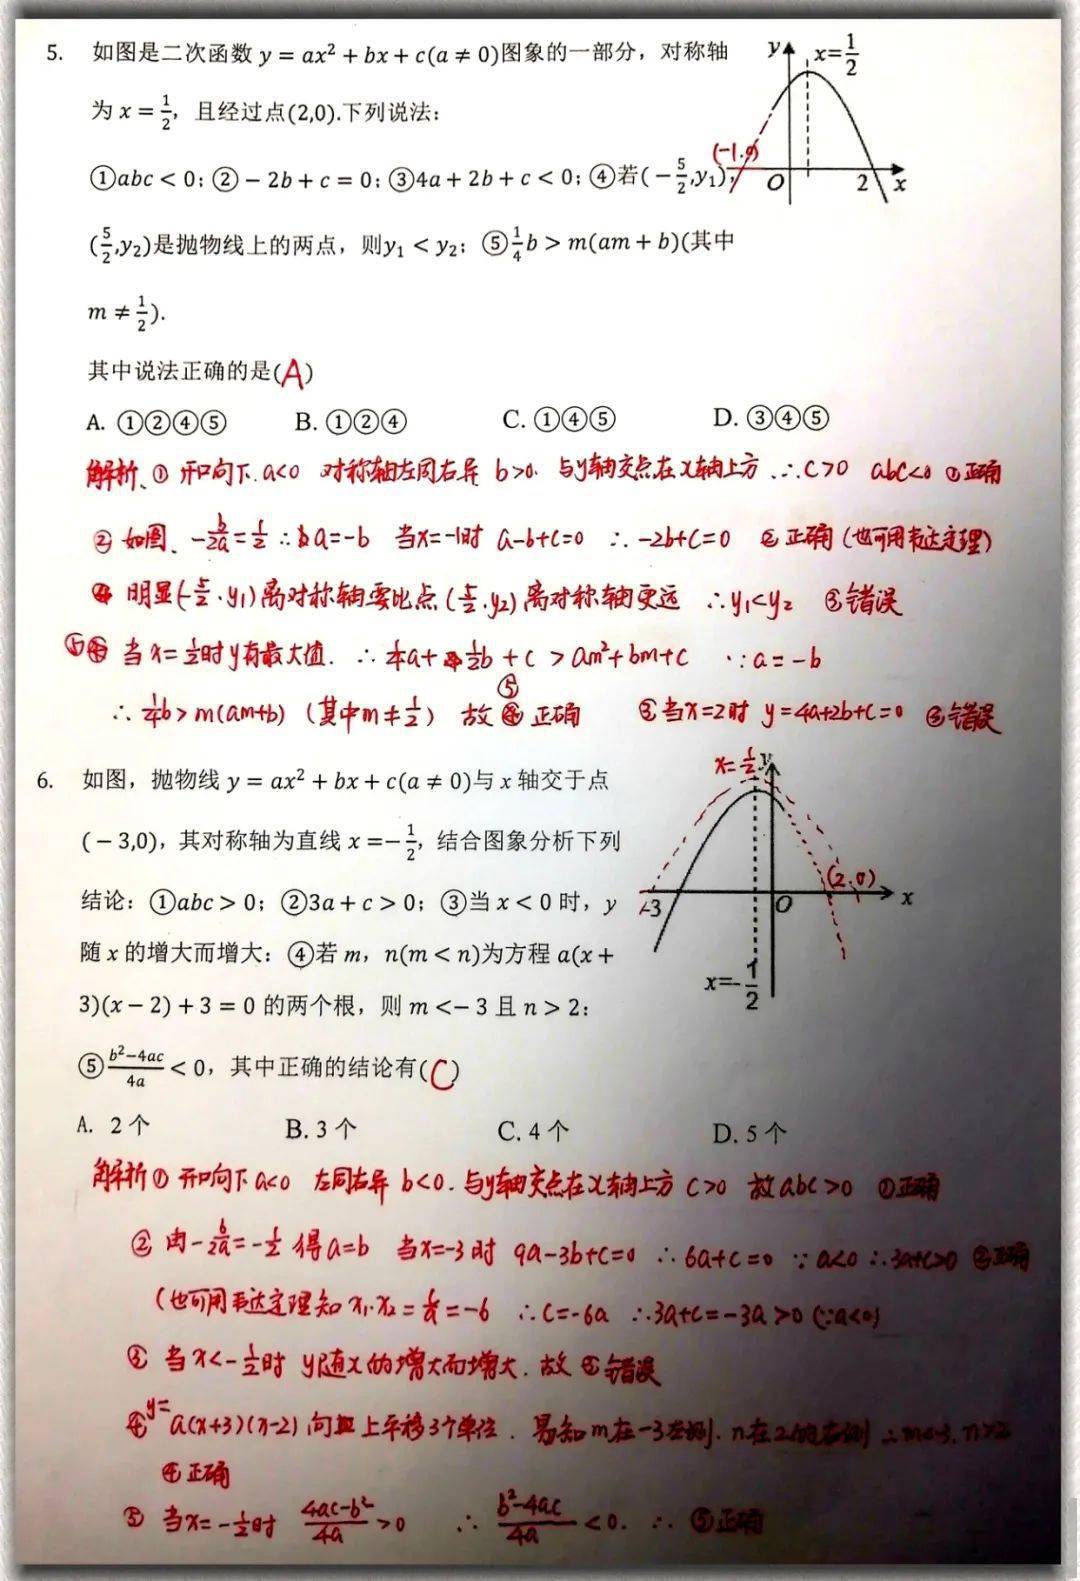 5. 如图是二次函数 y = ax² + bx + c(a ≠ 0)图象的一部分，对称轴
为 x = 1/2，且经过点(2,0).下列说法：
①abc < 0; ② − 2b + c = 0; ③4a + 2b + c < 0; ④若(−5/2,y₁),
(5/2,y₂)是抛物线上的两点，则y₁ < y₂; ⑤1/4b > m(am + b)(其中
m ≠ 1/2).
y x=1/2
(-1.0)
O 2 x
其中说法正确的是(A)
A. ①②④⑤ B. ①②④ C. ①④⑤ D. ③④⑤
解析、① 开口向下. a<0 对称轴左同右异 b>0. 与y轴交点在x轴上方 .∴C>0 abc<0 ①正确
② 如图、-b/2a=1/2 ∴a=-b 当x=-1时 a-b+c=0 ∴-2b+c=0 ②正确 (也可用韦达定理)
④ 明显(-5/2.y₁)离对称轴要比点(5/2.y₂)离对称轴更远 ∴y₁<y₂ ③错误
⑤ 当x=1/2时y有最大值. ∴1/4a+1/2b+c>am²+bm+c ∵a=-b
∴1/4b>m(am+b) (其中m≠1/2) 故⑤正确 ③当x=2时 y=4a+2b+c=0 ③错误
6. 如图，抛物线 y = ax² + bx + c(a ≠ 0)与 x 轴交于点
(−3,0)，其对称轴为直线 x =−1/2，结合图象分析下列
结论：①abc > 0; ②3a + c > 0; ③当 x < 0 时，y
随 x 的增大而增大：④若 m，n(m < n)为方程 a(x +
3)(x − 2) + 3 = 0 的两个根，则 m <− 3 且 n > 2：
⑤(b²−4ac)/4a < 0，其中正确的结论有(C)
x=-1/2 y
(2.0)
-3 O x
x=-1/2
A. 2 个 B. 3 个 C. 4 个 D. 5 个
解析① 开口向下 a<0 左同右异 b<0. 与y轴交点在x轴上方 c>0 故abc>0 ①正确
② 由-b/2a=-1/2 得a=b 当x=-3时 9a-3b+c=0 ∴6a+c=0 ∵a<0 ∴3a+c>0 ②正确
(也可用韦达定理知x₁·x₂=c/a=-6 ∴c=-6a ∴3a+c=-3a>0 (∵a<0)
③ 当x<-1/2时 y随x的增大而增大. 故③错误
④ y=a(x+3)(x-2)向上平移3个单位. 易知m在-3左侧. n在2的右侧 ∴m<-3. n>2
④正确
⑤ 当x=-1/2时 (4ac-b²)/4a>0 ∴(b²-4ac)/4a<0. ∴⑤正确